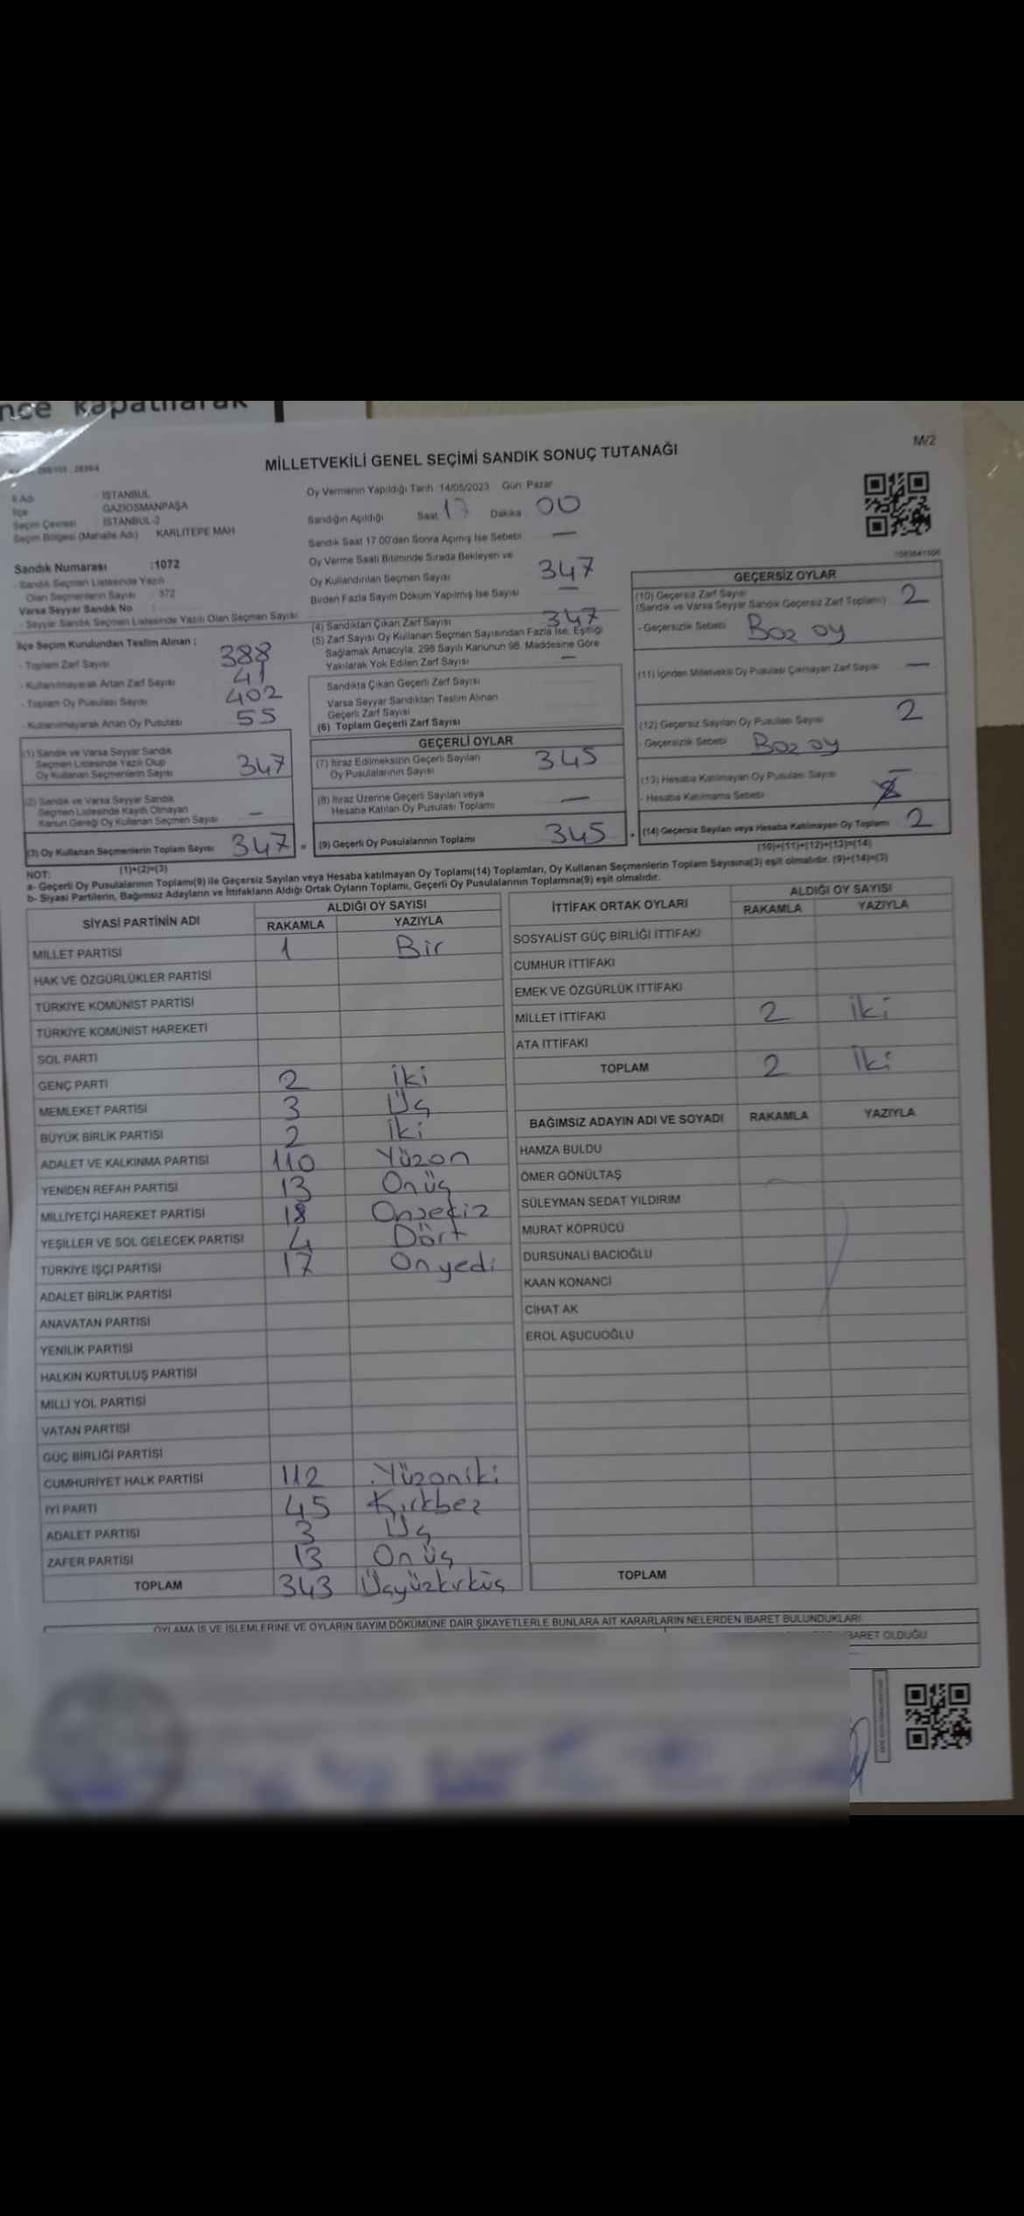 nce kapatılarak
M/2
MİLLETVEKİLİ GENEL SEÇİMİ SANDIK SONUÇ TUTANAĞI
İl Adı : İSTANBUL
İlçe : GAZİOSMANPAŞA
Seçim Çevresi : İSTANBUL-2
Seçim Bölgesi (Mahalle Adı) : KARLITEPE MAH
Sandık Numarası :1072
- Sandık Seçmen Listesinde Yazılı
Olan Seçmenlerin Sayısı : 372
Varsa Seyyar Sandık No :
- Seyyar Sandık Seçmen Listesinde Yazılı Olan Seçmen Sayısı:
İlçe Seçim Kurulundan Teslim Alınan :
- Toplam Zarf Sayısı 388
- Kullanılmayarak Artan Zarf Sayısı 41
- Toplam Oy Pusulası Sayısı 402
- Kullanılmayarak Artan Oy Pusulası 55
(1) Sandık ve Varsa Seyyar Sandık
Seçmen Listesinde Yazılı Olup
Oy Kullanan Seçmenlerin Sayısı 347
(2) Sandık ve Varsa Seyyar Sandık
Seçmen Listesinde Kayıtlı Olmayan
Kanun Gereği Oy Kullanan Seçmen Sayısı —
(3) Oy Kullanan Seçmenlerin Toplam Sayısı 347 =
(1)+(2)=(3)
Oy Vermenin Yapıldığı Tarih :14/05/2023 Gün: Pazar
Sandığın Açıldığı Saat 17 Dakika 00
Sandık Saat 17.00'den Sonra Açımış İse Sebebi —
Oy Verme Saati Bitiminde Sırada Bekleyen ve
Oy Kullandırılan Seçmen Sayısı 347
Birden Fazla Sayım Döküm Yapılmış İse Sayısı —
(4) Sandıktan Çıkan Zarf Sayısı 347
(5) Zarf Sayısı Oy Kullanan Seçmen Sayısından Fazla İse, Eşitliği
Sağlamak Amacıyla, 298 Sayılı Kanunun 98. Maddesine Göre
Yakılarak Yok Edilen Zarf Sayısı —
Sandıkta Çıkan Geçerli Zarf Sayısı
Varsa Seyyar Sandıktan Teslim Alınan
Geçerli Zarf Sayısı
(6) Toplam Geçerli Zarf Sayısı
GEÇERLİ OYLAR
(7) İtiraz Edilmeksizin Geçerli Sayılan
Oy Pusulalarının Sayısı 345
(8) İtiraz Üzerine Geçerli Sayılan veya
Hesaba Katılan Oy Pusulası Toplamı —
(9) Geçerli Oy Pusulalarının Toplamı 345 +
GEÇERSİZ OYLAR
(10) Geçersiz Zarf Sayısı
(Sandık ve Varsa Seyyar Sandık Geçersiz Zarf Toplamı) 2
- Geçersizlik Sebebi Boz oy
(11) İçinden Milletvekili Oy Pusulası Çıkmayan Zarf Sayısı —
(12) Geçersiz Sayılan Oy Pusulası Sayısı 2
- Geçersizlik Sebebi Boz oy
(13) Hesaba Katılmayan Oy Pusulası Sayısı —
- Hesaba Katılmama Sebebi
(14) Geçersiz Sayılan veya Hesaba Katılmayan Oy Toplamı 2
(10)+(11)+(12)+(13)=(14)
NOT:
a- Geçerli Oy Pusulalarının Toplamı(9) ile Geçersiz Sayılan veya Hesaba katılmayan Oy Toplamı(14) Toplamları, Oy Kullanan Seçmenlerin Toplam Sayısına(3) eşit olmalıdır. (9)+(14)=(3)
b- Siyasi Partilerin, Bağımsız Adayların ve İttifakların Aldığı Ortak Oyların Toplamı, Geçerli Oy Pusulalarının Toplamına(9) eşit olmalıdır.
SİYASİ PARTİNİN ADI ALDIĞI OY SAYISI
RAKAMLA YAZIYLA
MİLLET PARTİSİ 1 Bir
HAK VE ÖZGÜRLÜKLER PARTİSİ
TÜRKİYE KOMÜNİST PARTİSİ
TÜRKİYE KOMÜNİST HAREKETİ
SOL PARTİ
GENÇ PARTİ 2 iki
MEMLEKET PARTİSİ 3 Üç
BÜYÜK BİRLİK PARTİSİ 2 iki
ADALET VE KALKINMA PARTİSİ 110 Yüzon
YENİDEN REFAH PARTİSİ 13 Onüç
MİLLİYETÇİ HAREKET PARTİSİ 18 Onsekiz
YEŞİLLER VE SOL GELECEK PARTİSİ 4 Dört
TÜRKİYE İŞÇİ PARTİSİ 17 Onyedi
ADALET BİRLİK PARTİSİ
ANAVATAN PARTİSİ
YENİLİK PARTİSİ
HALKIN KURTULUŞ PARTİSİ
MİLLİ YOL PARTİSİ
VATAN PARTİSİ
GÜÇ BİRLİĞİ PARTİSİ
CUMHURİYET HALK PARTİSİ 112 Yüzoniki
İYİ PARTİ 45 Kırkbeş
ADALET PARTİSİ 3 Üç
ZAFER PARTİSİ 13 Onüç
TOPLAM 343 Üçyüzkırküç
İTTİFAK ORTAK OYLARI ALDIĞI OY SAYISI
RAKAMLA YAZIYLA
SOSYALİST GÜÇ BİRLİĞİ İTTİFAKI
CUMHUR İTTİFAKI
EMEK VE ÖZGÜRLÜK İTTİFAKI
MİLLET İTTİFAKI 2 iki
ATA İTTİFAKI
TOPLAM 2 iki
BAĞIMSIZ ADAYIN ADI VE SOYADI RAKAMLA YAZIYLA
HAMZA BULDU
ÖMER GÖNÜLTAŞ
SÜLEYMAN SEDAT YILDIRIM
MURAT KÖPRÜCÜ
DURSUNALİ BACIOĞLU
KAAN KONANCİ
CİHAT AK
EROL AŞUCUOĞLU
TOPLAM
OYLAMA İŞ VE İŞLEMLERİNE VE OYLARIN SAYIM DÖKÜMÜNE DAİR ŞİKAYETLERLE BUNLARA AİT KARARLARIN NELERDEN İBARET BULUNDUKLARI
BARET OLDUĞU